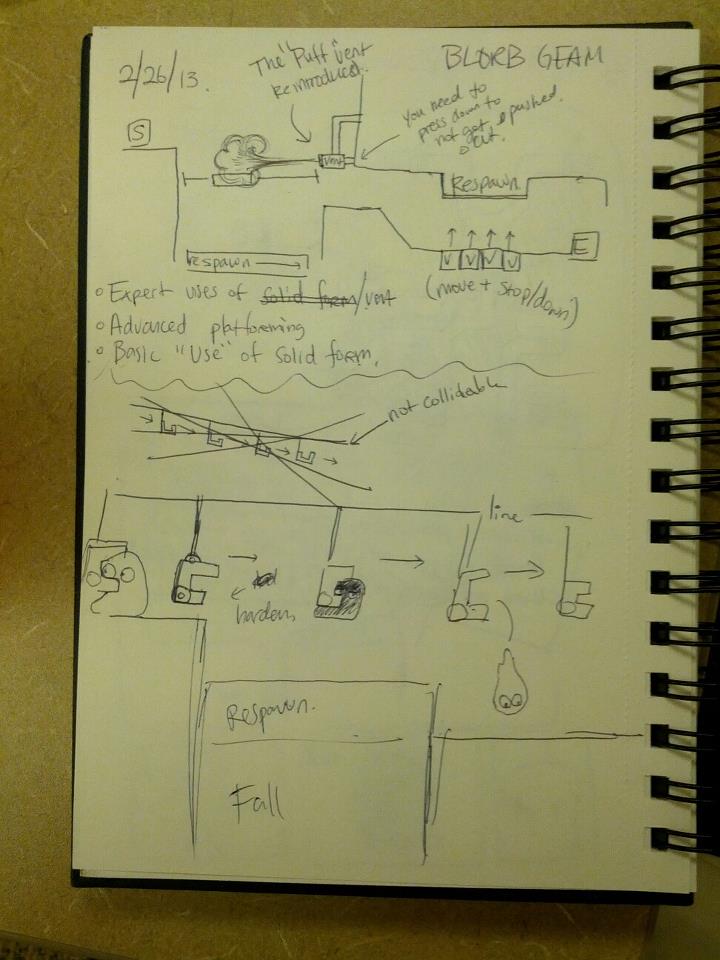 2/26/13.
The "Puff" vent
Reintroduced.
BLORB GEAM
You need to
press down to
not get pushed
out.
S
Vent
Respawn
respawn
V V V V
E
(move + stop/down)
Expert uses of solid form/vent
Advanced platforming
Basic "Use" of solid form.
not collideable
line
hardens
Respawn.
Fall